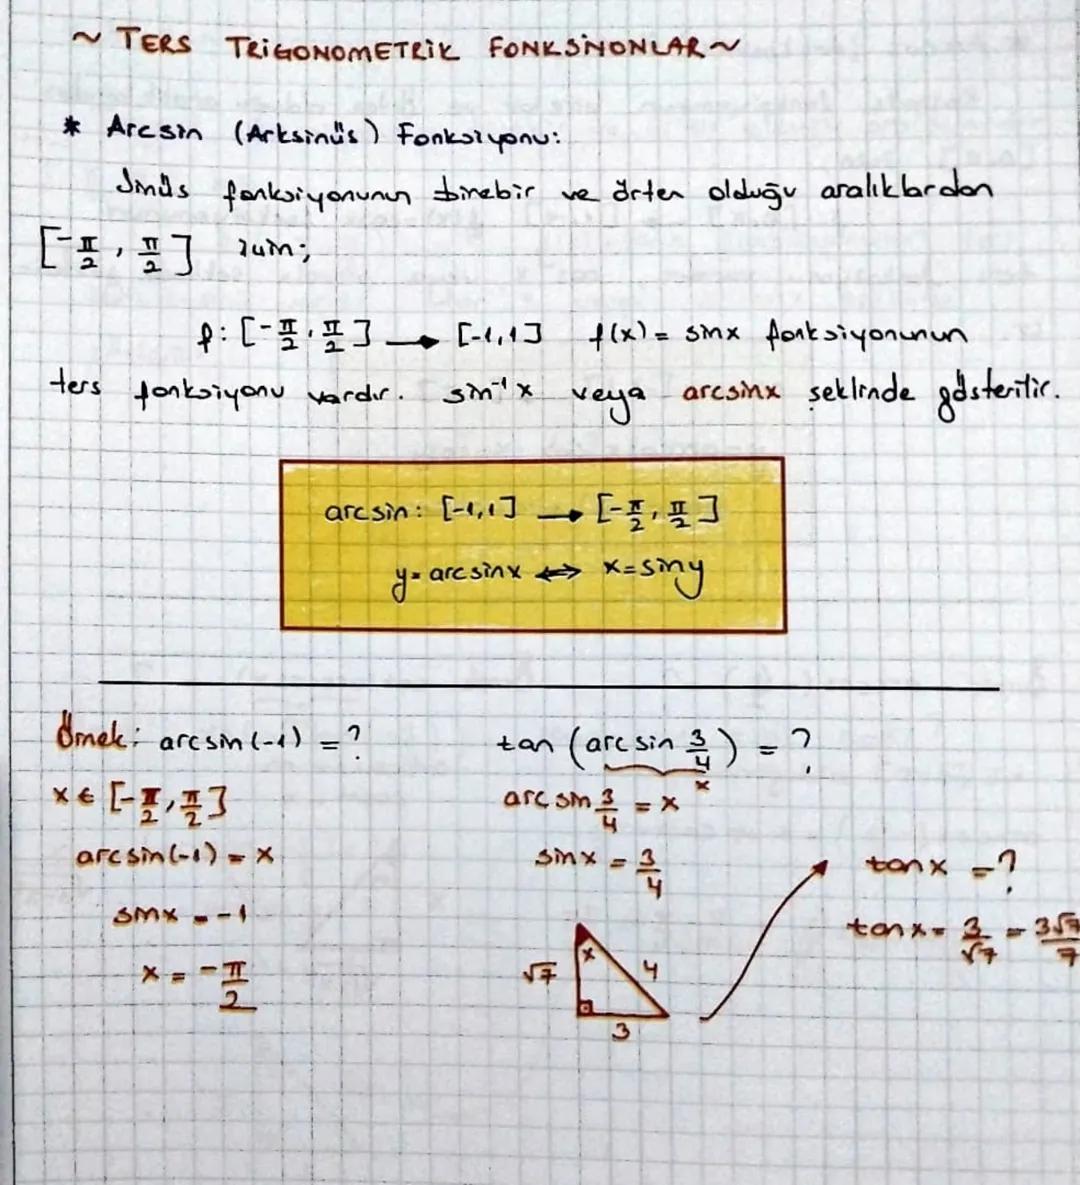 ~ TERS TRİGONOMETRİK FONKSİYONLAR ~
* Arcsin (Arksinüs) Fonksiyonu:
Sinüs fonksiyonunun birebir ve örten olduğu aralıklardan
[-π/2, π/2] için;
f: [-π/2, π/2] → [-1,1] f(x) = sinx fonksiyonunun
ters fonksiyonu vardır. sin⁻¹x veya arcsinx şeklinde gösterilir.
arcsin: [-1,1] → [-π/2, π/2]
y = arcsinx ⇔ x = siny
Örnek: arcsin(-1) = ?
x ∈ [-π/2, π/2]
arcsin(-1) = x
sinx = -1
x = -π/2
tan (arcsin 3/4) = ?
x
arcsin 3/4 = x
sinx = 3/4
x
√7
4
3
tanx = ?
tanx = 3/√7 = 3√7/7